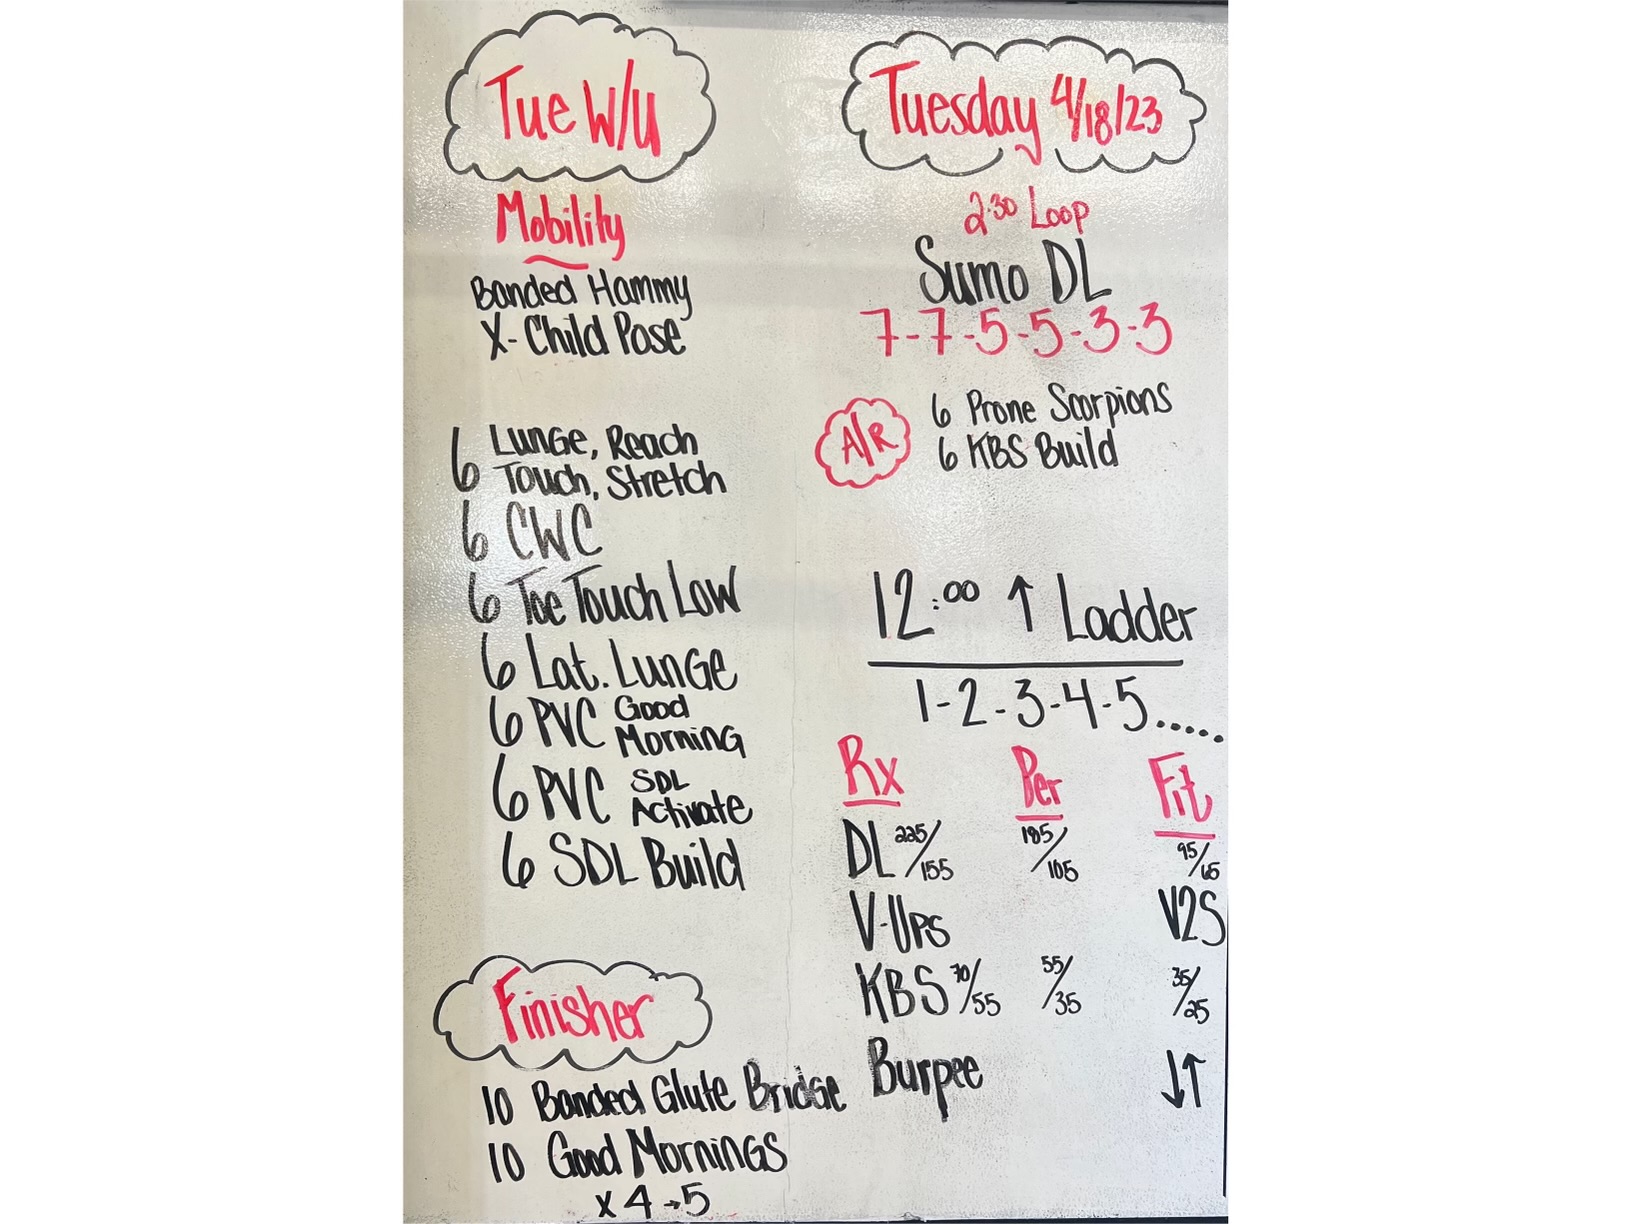 Tue W/U
Mobility
Banded Hammy
X-Child Pose
6 Lunge, Reach
Touch, Stretch
6 CWC
6 Toe Touch Low
6 Lat. Lunge
6 PVC Good
Morning
6 PVC SDL
Activate
6 SDL Build
Finisher
10 Banded Glute Bridge
10 Good Mornings
x 4→5
Tuesday 4/18/23
2:30 Loop
Sumo DL
7-7-5-5-3-3
A/R
6 Prone Scorpions
6 KBS Build
12:00 ↑ Ladder
1-2-3-4-5.....
Rx Per Fit
DL 225/155 185/105 95/65
V-Ups V2S
KBS 70/55 55/35 35/25
Burpee ↓↑